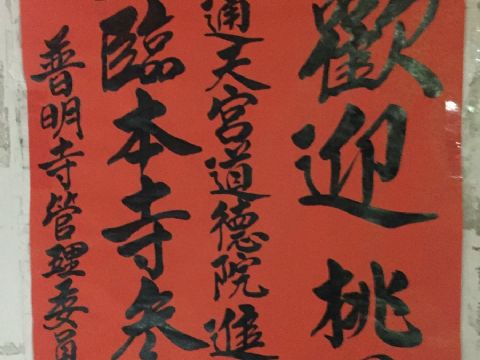 歡迎桃
通天宮道德院進
臨本寺参
普明寺管理委員